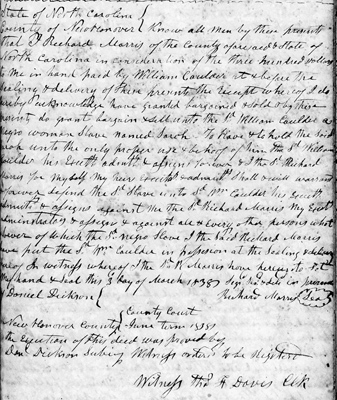 State of North Carolina
County of New Hanover Know all men by these presents
that I Richard Marris of the County aforesaid & State of
North Carolina in consideration of the three hundred dollars
to me in hand paid by William Caulder at & before the
sealing & delivery of these presents the receipt whereof I do
hereby acknowledge have granted bargained & sold & by these
presents do grant bargain & sell unto the sd. William Caulder a
Negro woman Slave named Sarah To Have & to hold the said
Sarah unto the only proper use & behoof of him the sd. William
Caulder his Execrs. admrs. & assigns forever & I the sd. Richard
Marris for myself my heirs Execrs. & admrs. shall & will warrant
& forever defend the sd. Slave unto sd. Wm. Caulder his Execrs.
admrs. & assigns against me the sd. Richard Marris my Execrs.
administrators & assigns & against all & every other persons what
soever of which the sd. negro Slave I the said Richard Marris
have put the sd. Wm. Caulder in possession at the sealing & delivery
hereof In witness whereof I the sd. R. Marris have hereunto set
my hand & seal this 3 day of March 1838
Richard Marris Seal
Daniel Dickson
County Court
New Hanover County June term 1838
the Execution of this deed was proved by
Danl. Dickson Subscg. Witness ordered to be Registerd
Witness Thos. F Davis Clk